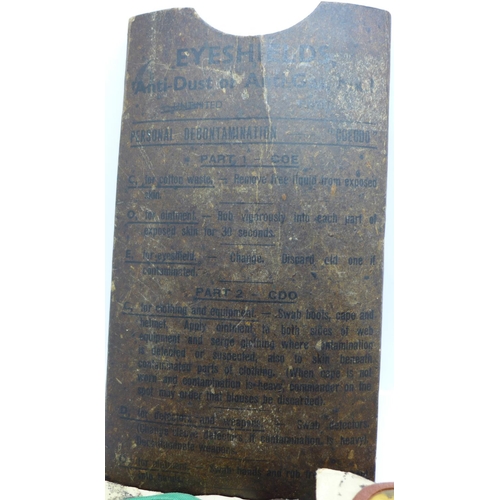 EYESHIELDS
Anti-Dust or Anti-Gas
PERSONAL DECONTAMINATION "COECDO"
PART 1 - COE
C, for cotton waste. — Remove free liquid from exposed
skin.
O, for ointment. — Rub vigorously into each part of
exposed skin for 30 seconds.
E, for eyeshield. — Change. Discard old one if
contaminated.
PART 2 - CDO
C, for clothing and equipment. — Swab boots, cape and
helmet. Apply ointment to both sides of web
equipment and serge clothing where contamination
is detected or suspected, also to skin beneath
contaminated parts of clothing. (When cape is not
worn and contamination is heavy, commander on the
spot may order that blouses be discarded).
D, for detectors and weapons. — Swab detectors
detectors if contamination is heavy).
weapons
hands and rub